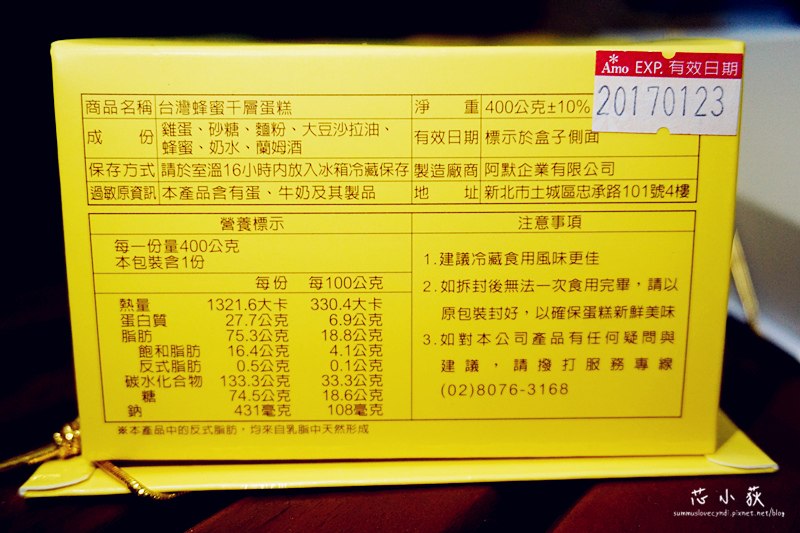 Amo EXP. 有效日期
20170123
商品名稱 台灣蜂蜜千層蛋糕 淨 重 400公克±10%
成 份 雞蛋、砂糖、麵粉、大豆沙拉油、
蜂蜜、奶水、蘭姆酒
有效日期 標示於盒子側面
保存方式 請於室溫16小時內放入冰箱冷藏保存 製造廠商 阿默企業有限公司
過敏原資訊 本產品含有蛋、牛奶及其製品 地 址 新北市土城區忠承路101號4樓
營養標示
每一份量400公克
本包裝含1份
每份 每100公克
熱量 1321.6大卡 330.4大卡
蛋白質 27.7公克 6.9公克
脂肪 75.3公克 18.8公克
飽和脂肪 16.4公克 4.1公克
反式脂肪 0.5公克 0.1公克
碳水化合物 133.3公克 33.3公克
糖 74.5公克 18.6公克
鈉 431毫克 108毫克
※本產品中的反式脂肪，均來自乳脂中天然形成
注意事項
1.建議冷藏食用風味更佳
2.如拆封後無法一次食用完畢，請以
原包裝封好，以確保蛋糕新鮮美味
3.如對本公司產品有任何疑問與
建議，請撥打服務專線
(02)8076-3168
芯小荻
summuslovecyndi.pixnet.net/blog